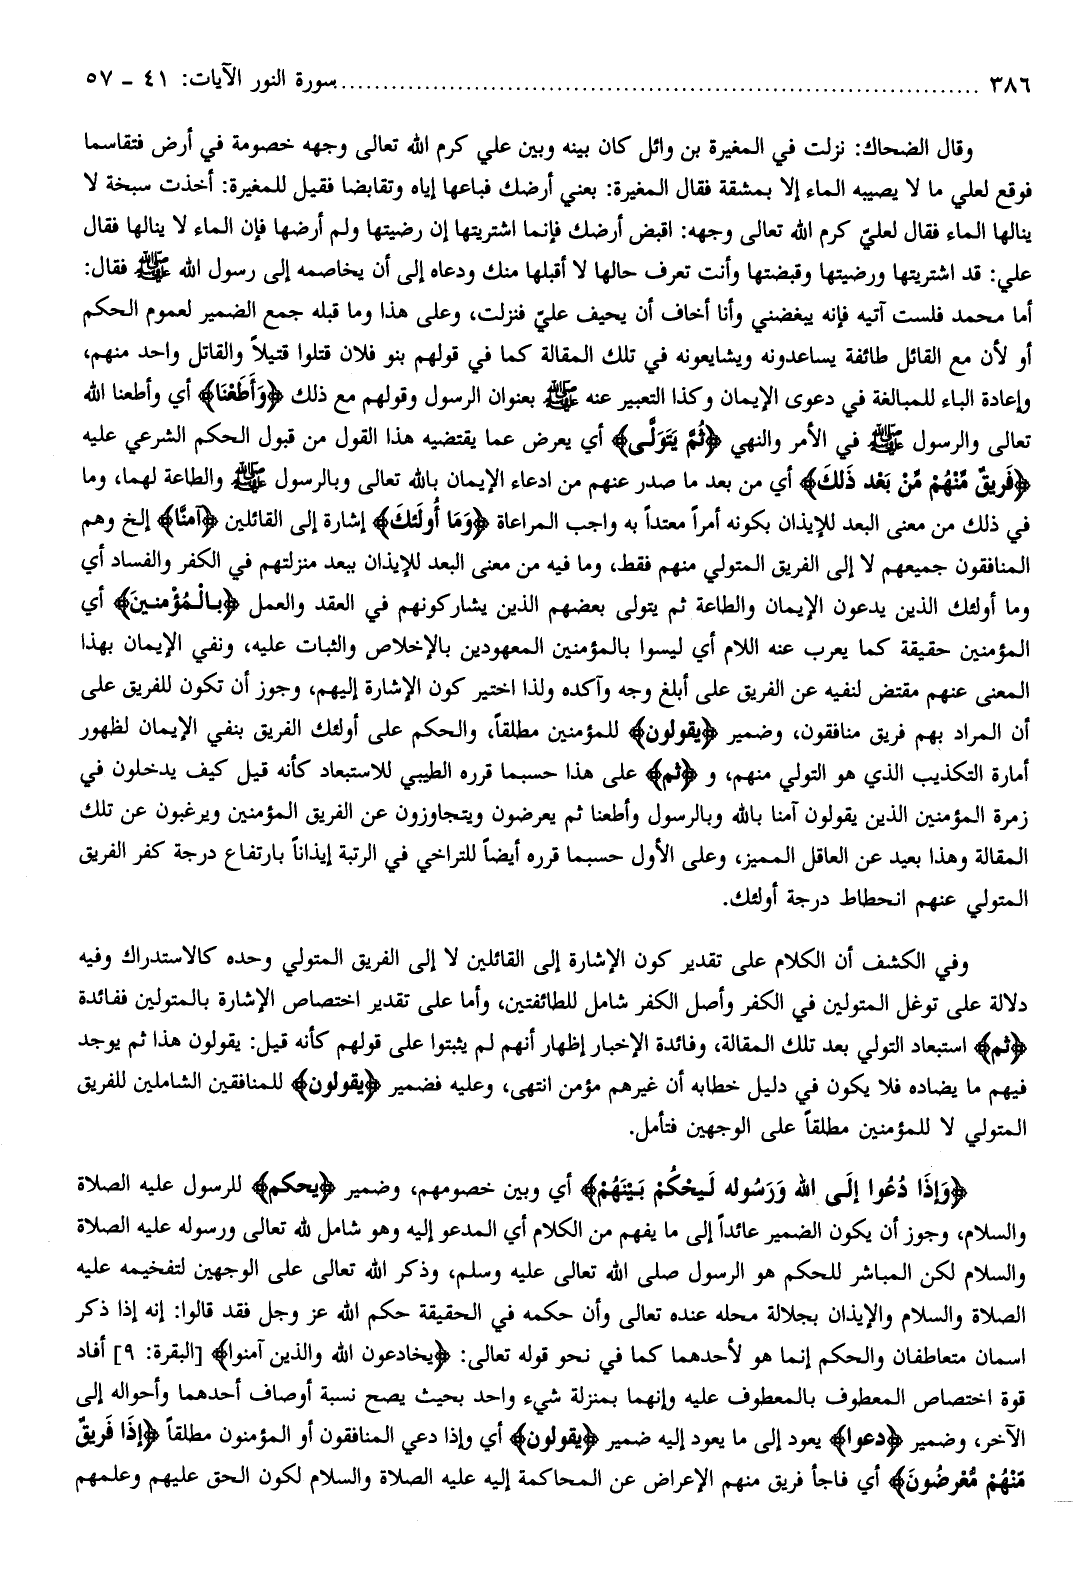 ٣٨٦ ........................................................................ سورة النور الآيات: ٤١ - ٥٧
وقال الضحاك: نزلت في المغيرة بن وائل كان بينه وبين علي كرم الله تعالى وجهه خصومة في أرض فتقاسما
فوقع لعلي ما لا يصيبه الماء إلا بمشقة فقال المغيرة: بعني أرضك فباعها إياه وتقابضا فقيل للمغيرة: أخذت سبخة لا
ينالها الماء فقال لعليّ كرم الله تعالى وجهه: اقبض أرضك فإنما اشتريتها إن رضيتها ولم أرضها فإن الماء لا ينالها فقال
علي: قد اشتريتها ورضيتها وقبضتها وأنت تعرف حالها لا أقبلها منك ودعاه إلى أن يخاصمه إلى رسول الله ﷺ فقال:
أما محمد فلست آتيه فإنه يبغضني وأنا أخاف أن يحيف عليّ فنزلت، وعلى هذا وما قبله جمع الضمير لعموم الحكم
أو لأن مع القائل طائفة يساعدونه ويشايعونه في تلك المقالة كما في قولهم بنو فلان قتلوا قتيلاً والقاتل واحد منهم،
وإعادة الباء للمبالغة في دعوى الإيمان وكذا التعبير عنه ﷺ بعنوان الرسول وقولهم مع ذلك ﴿وَأَطَعْنَا﴾ أي وأطعنا الله
تعالى والرسول ﷺ في الأمر والنهي ﴿ثُمَّ يَتَوَلَّى﴾ أي يعرض عما يقتضيه هذا القول من قبول الحكم الشرعي عليه
﴿فَرِيقٌ مِّنْهُمْ مِّنْ بَعْد ذَلكَ﴾ أي من بعد ما صدر عنهم من ادعاء الإيمان بالله تعالى وبالرسول ﷺ والطاعة لهما، وما
في ذلك من معنى البعد للإيذان بكونه أمراً معتداً به واجب المراعاة ﴿وَمَا أُولَئكَ﴾ إشارة إلى القائلين ﴿آمنَّا﴾ إلخ وهم
المنافقون جميعهم لا إلى الفريق المتولي منهم فقط، وما فيه من معنى البعد للإيذان ببعد منزلتهم في الكفر والفساد أي
وما أولئك الذين يدعون الإيمان والطاعة ثم يتولى بعضهم الذين يشاركونهم في العقد والعمل ﴿بالْمُؤْمنينَ﴾ أي
المؤمنين حقيقة كما يعرب عنه اللام أي ليسوا بالمؤمنين المعهودين بالإخلاص والثبات عليه، ونفي الإيمان بهذا
المعنى عنهم مقتض لنفيه عن الفريق على أبلغ وجه وآكده ولذا اختير كون الإشارة إليهم، وجوز أن تكون للفريق على
أن المراد بهم فريق منافقون، وضمير ﴿يقولون﴾ للمؤمنين مطلقاً، والحكم على أولئك الفريق بنفي الإيمان لظهور
أمارة التكذيب الذي هو التولي منهم، و ﴿ثم﴾ على هذا حسبما قرره الطيبي للاستبعاد كأنه قيل كيف يدخلون في
زمرة المؤمنين الذين يقولون آمنا بالله وبالرسول وأطعنا ثم يعرضون ويتجاوزون عن الفريق المؤمنين ويرغبون عن تلك
المقالة وهذا بعيد عن العاقل المميز، وعلى الأول حسبما قرره أيضاً للتراخي في الرتبة إيذاناً بارتفاع درجة كفر الفريق
المتولي عنهم انحطاط درجة أولئك.
وفي الكشف أن الكلام على تقدير كون الإشارة إلى القائلين لا إلى الفريق المتولي وحده كالاستدراك وفيه
دلالة على توغل المتولين في الكفر وأصل الكفر شامل للطائفتين، وأما على تقدير اختصاص الإشارة بالمتولين ففائدة
﴿ثم﴾ استبعاد التولي بعد تلك المقالة، وفائدة الإخبار إظهار أنهم لم يثبتوا على قولهم كأنه قيل: يقولون هذا ثم يوجد
فيهم ما يضاده فلا يكون في دليل خطابه أن غيرهم مؤمن انتهى، وعليه فضمير ﴿يقولون﴾ للمنافقين الشاملين للفريق
المتولي لا للمؤمنين مطلقاً على الوجهين فتأمل.
﴿وَإذَا دُعُوا إلَى الله وَرَسُوله لَيحْكُمْ بَيْنَهُمْ﴾ أي وبين خصومهم، وضمير ﴿يحكم﴾ للرسول عليه الصلاة
والسلام، وجوز أن يكون الضمير عائداً إلى ما يفهم من الكلام أي المدعو إليه وهو شامل لله تعالى ورسوله عليه الصلاة
والسلام لكن المباشر للحكم هو الرسول صلى الله تعالى عليه وسلم، وذكر الله تعالى على الوجهين لتفخيمه عليه
الصلاة والسلام والإيذان بجلالة محله عنده تعالى وأن حكمه في الحقيقة حكم الله عز وجل فقد قالوا: إنه إذا ذكر
اسمان متعاطفان والحكم إنما هو لأحدهما كما في نحو قوله تعالى: ﴿يخادعون الله والذين آمنوا﴾ [البقرة: ٩] أفاد
قوة اختصاص المعطوف بالمعطوف عليه وإنهما بمنزلة شيء واحد بحيث يصح نسبة أوصاف أحدهما وأحواله إلى
الآخر، وضمير ﴿دعوا﴾ يعود إلى ما يعود إليه ضمير ﴿يقولون﴾ أي وإذا دعي المنافقون أو المؤمنون مطلقاً ﴿إذَا فَريقٌ
مِّنْهُمْ مُّعْرضُونَ﴾ أي فاجأ فريق منهم الإعراض عن المحاكمة إليه عليه الصلاة والسلام لكون الحق عليهم وعلمهم